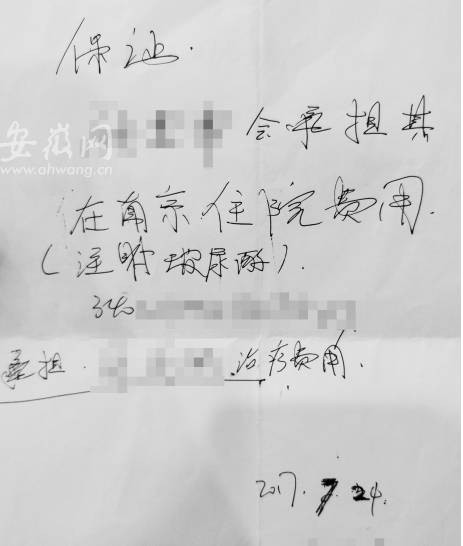 保证.
会承担其
安徽网
www.ahwang.cn
在南京住院费用.
(注射玻尿酸).
340
承担. 治疗费用.
2017. 7. 24.